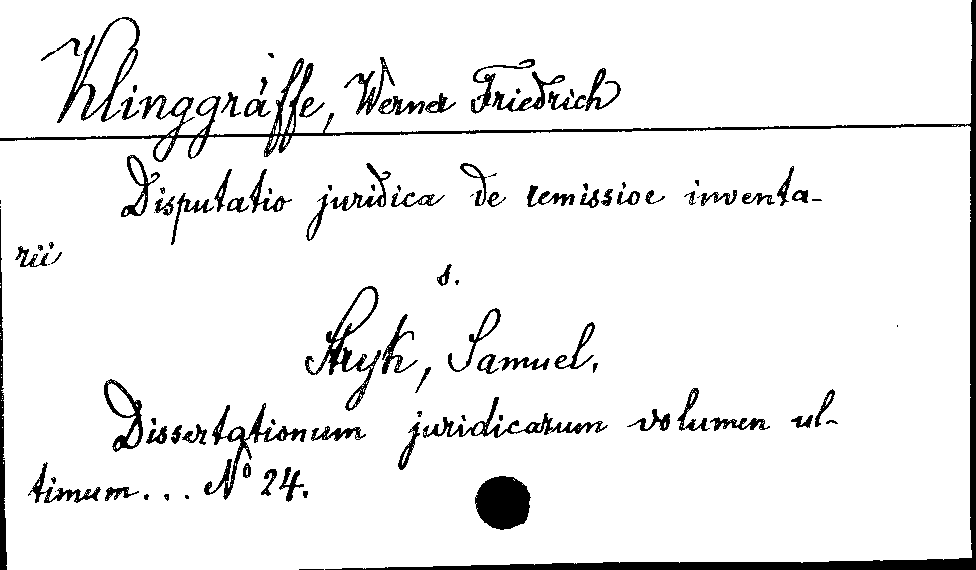 Klinggräffe, Werner Friedrich
Disputatio juridica de remissioe inventa-
rii
s.
Stryk, Samuel.
Dissertationum juridicarum volumen ul-
timum... No 24.